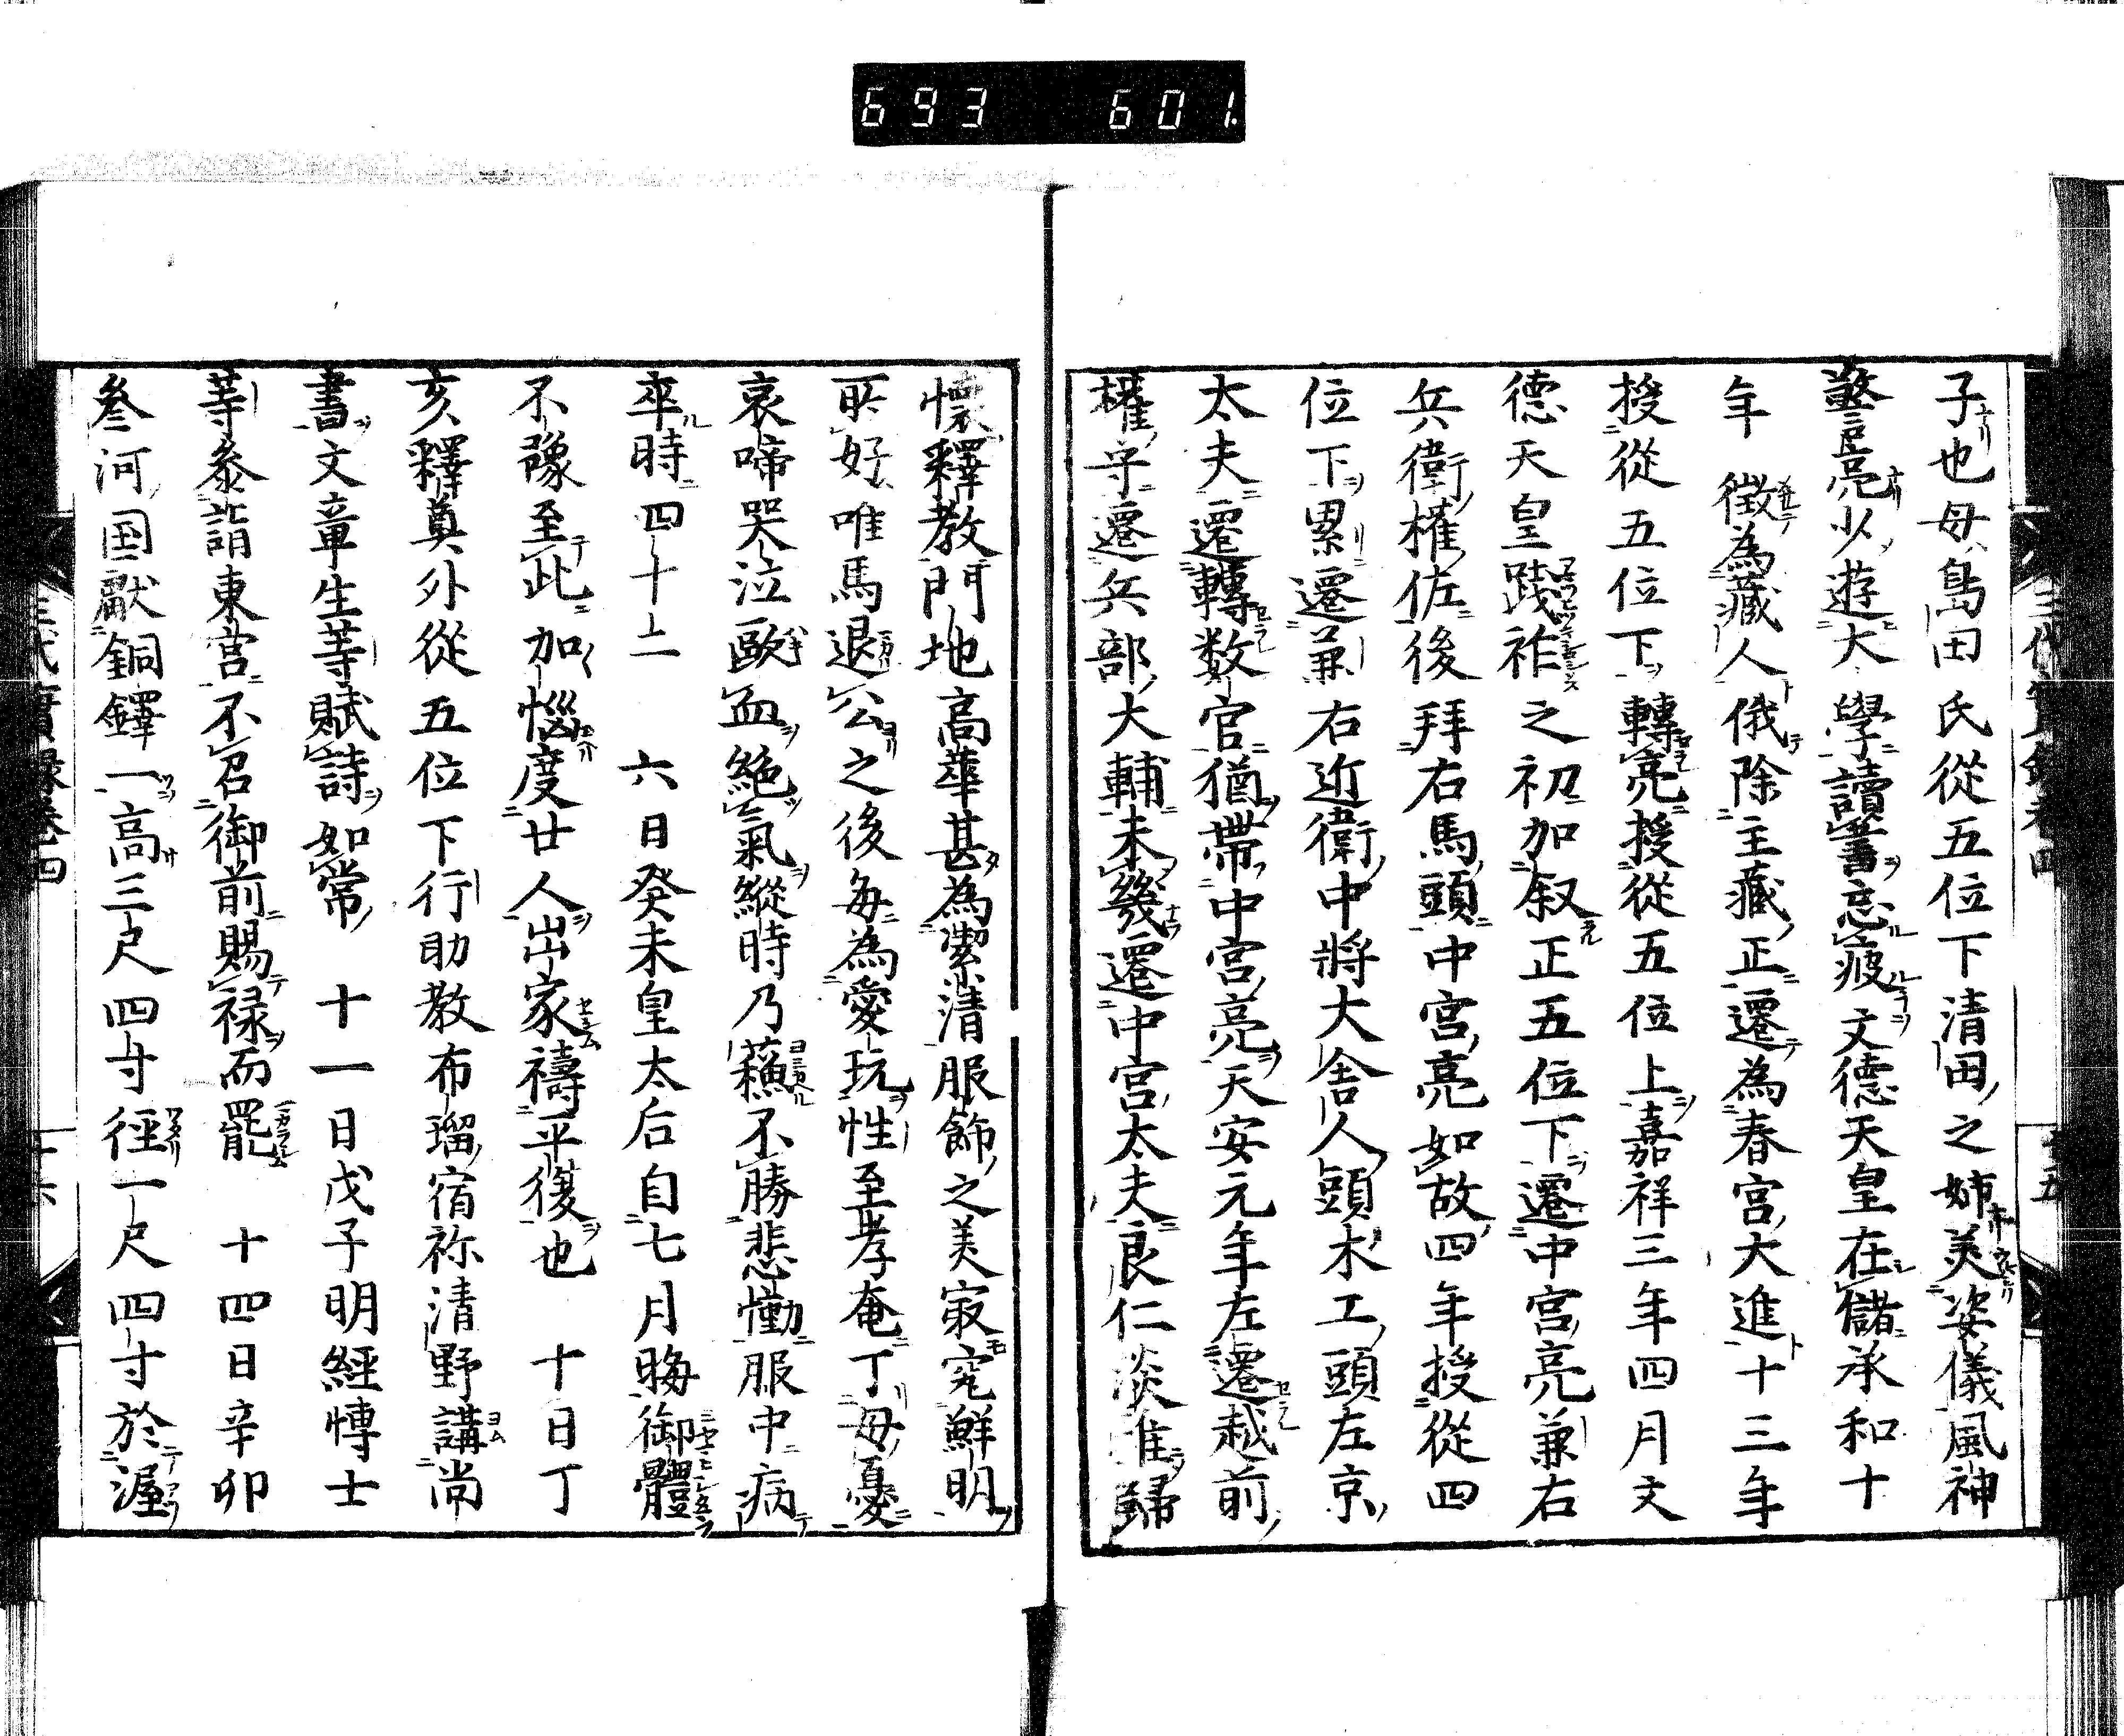 693 601.
子也母島田氏從五位下清田之姉美姿儀風神
警亮少遊大學讀書忘疲文德天皇在儲承和十
年 徵為藏人俄除主藏正遷為春宮大進十三年
授從五位下轉亮授從五位上嘉祥三年四月文
德天皇踐祚之初加叙正五位下遷中宮亮兼右
兵衛權佐後拜右馬頭中宮亮如故四年授從四
位下累遷兼右近衛中將大舍人頭木工頭左京
太夫遷轉数官猶帶中宮亮天安元年左遷越前
權守遷兵部大輔未幾遷中宮太夫良仁淡雅歸
懷釋教門地高華甚為潔清服飾之美寂究鮮明
所好唯馬退公之後每為愛玩性至孝奄丁母憂
哀啼哭泣歐血絶氣縱時乃蘓不勝悲慟服中病
卒時四十二 六日癸未皇太后自七月晦御體
不豫至此加惱度廿人出家禱平復也 十日丁
亥釋奠外從五位下行助教布瑠宿祢清野講尚
書文章生等賦詩如常 十一日戊子明經博士
等參詣東宮不召御前賜祿而罷 十四日辛卯
參河国獻銅鐸一高三尺四寸徑一尺四寸於渥
三代實録卷四